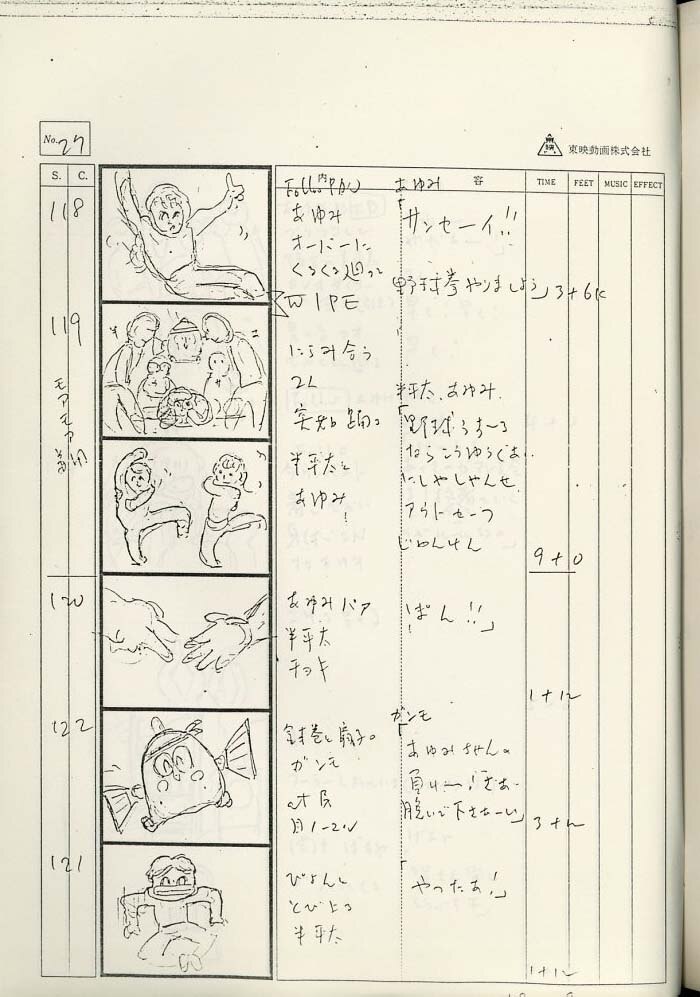 No. 27
東映動画株式会社
S. C. 内 容 TIME FEET MUSIC EFFECT
118
Follow PAN
あゆみ
オーバーに
くるくる廻って
WIPE
あゆみ
「サンセーイ!!
野球拳やりましょう」
3+6k
119
にらみ合う
2人
突如踊る
半平太と
あゆみ!
半平太、あゆみ
「野球うま〜る
なら こうゆうぐあい
にしやしゃんせ
アウト セーフ
じゃんけん
9+0
120
あゆみ パア
半平太
チョキ
ぽん!!」
1+12
122
鉢巻と扇子の
ガンモ
ガンモ
「あゆみちゃんの
負けー!
脱いで下さーい」
121
ぴょんと
とび上る
半平太
「やったあ!」
1+12